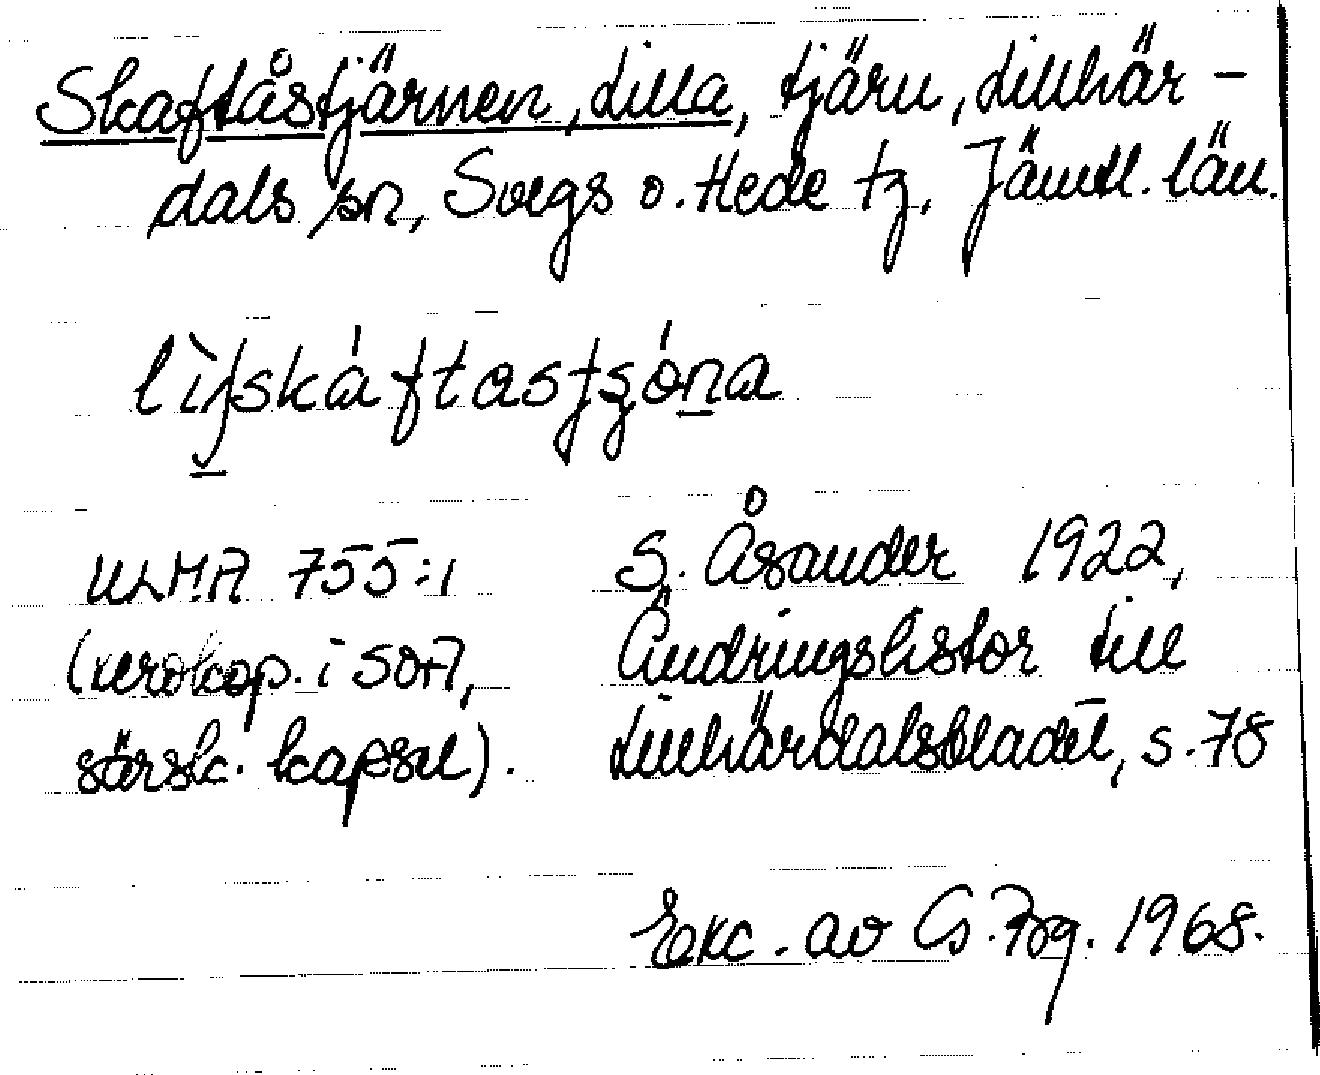 Skaftåstjärnen, Lilla, tjärn, Lillhär-
dals sn, Svegs o. Hede tg, Jämtl. län.
ULMA 755:1
(xerokop. i SOA,
särsk. kapsel).
S. Åsander 1922,
Ändringslistor till
Lillhärdalsbladet, s. 78
Exc. av 1968.